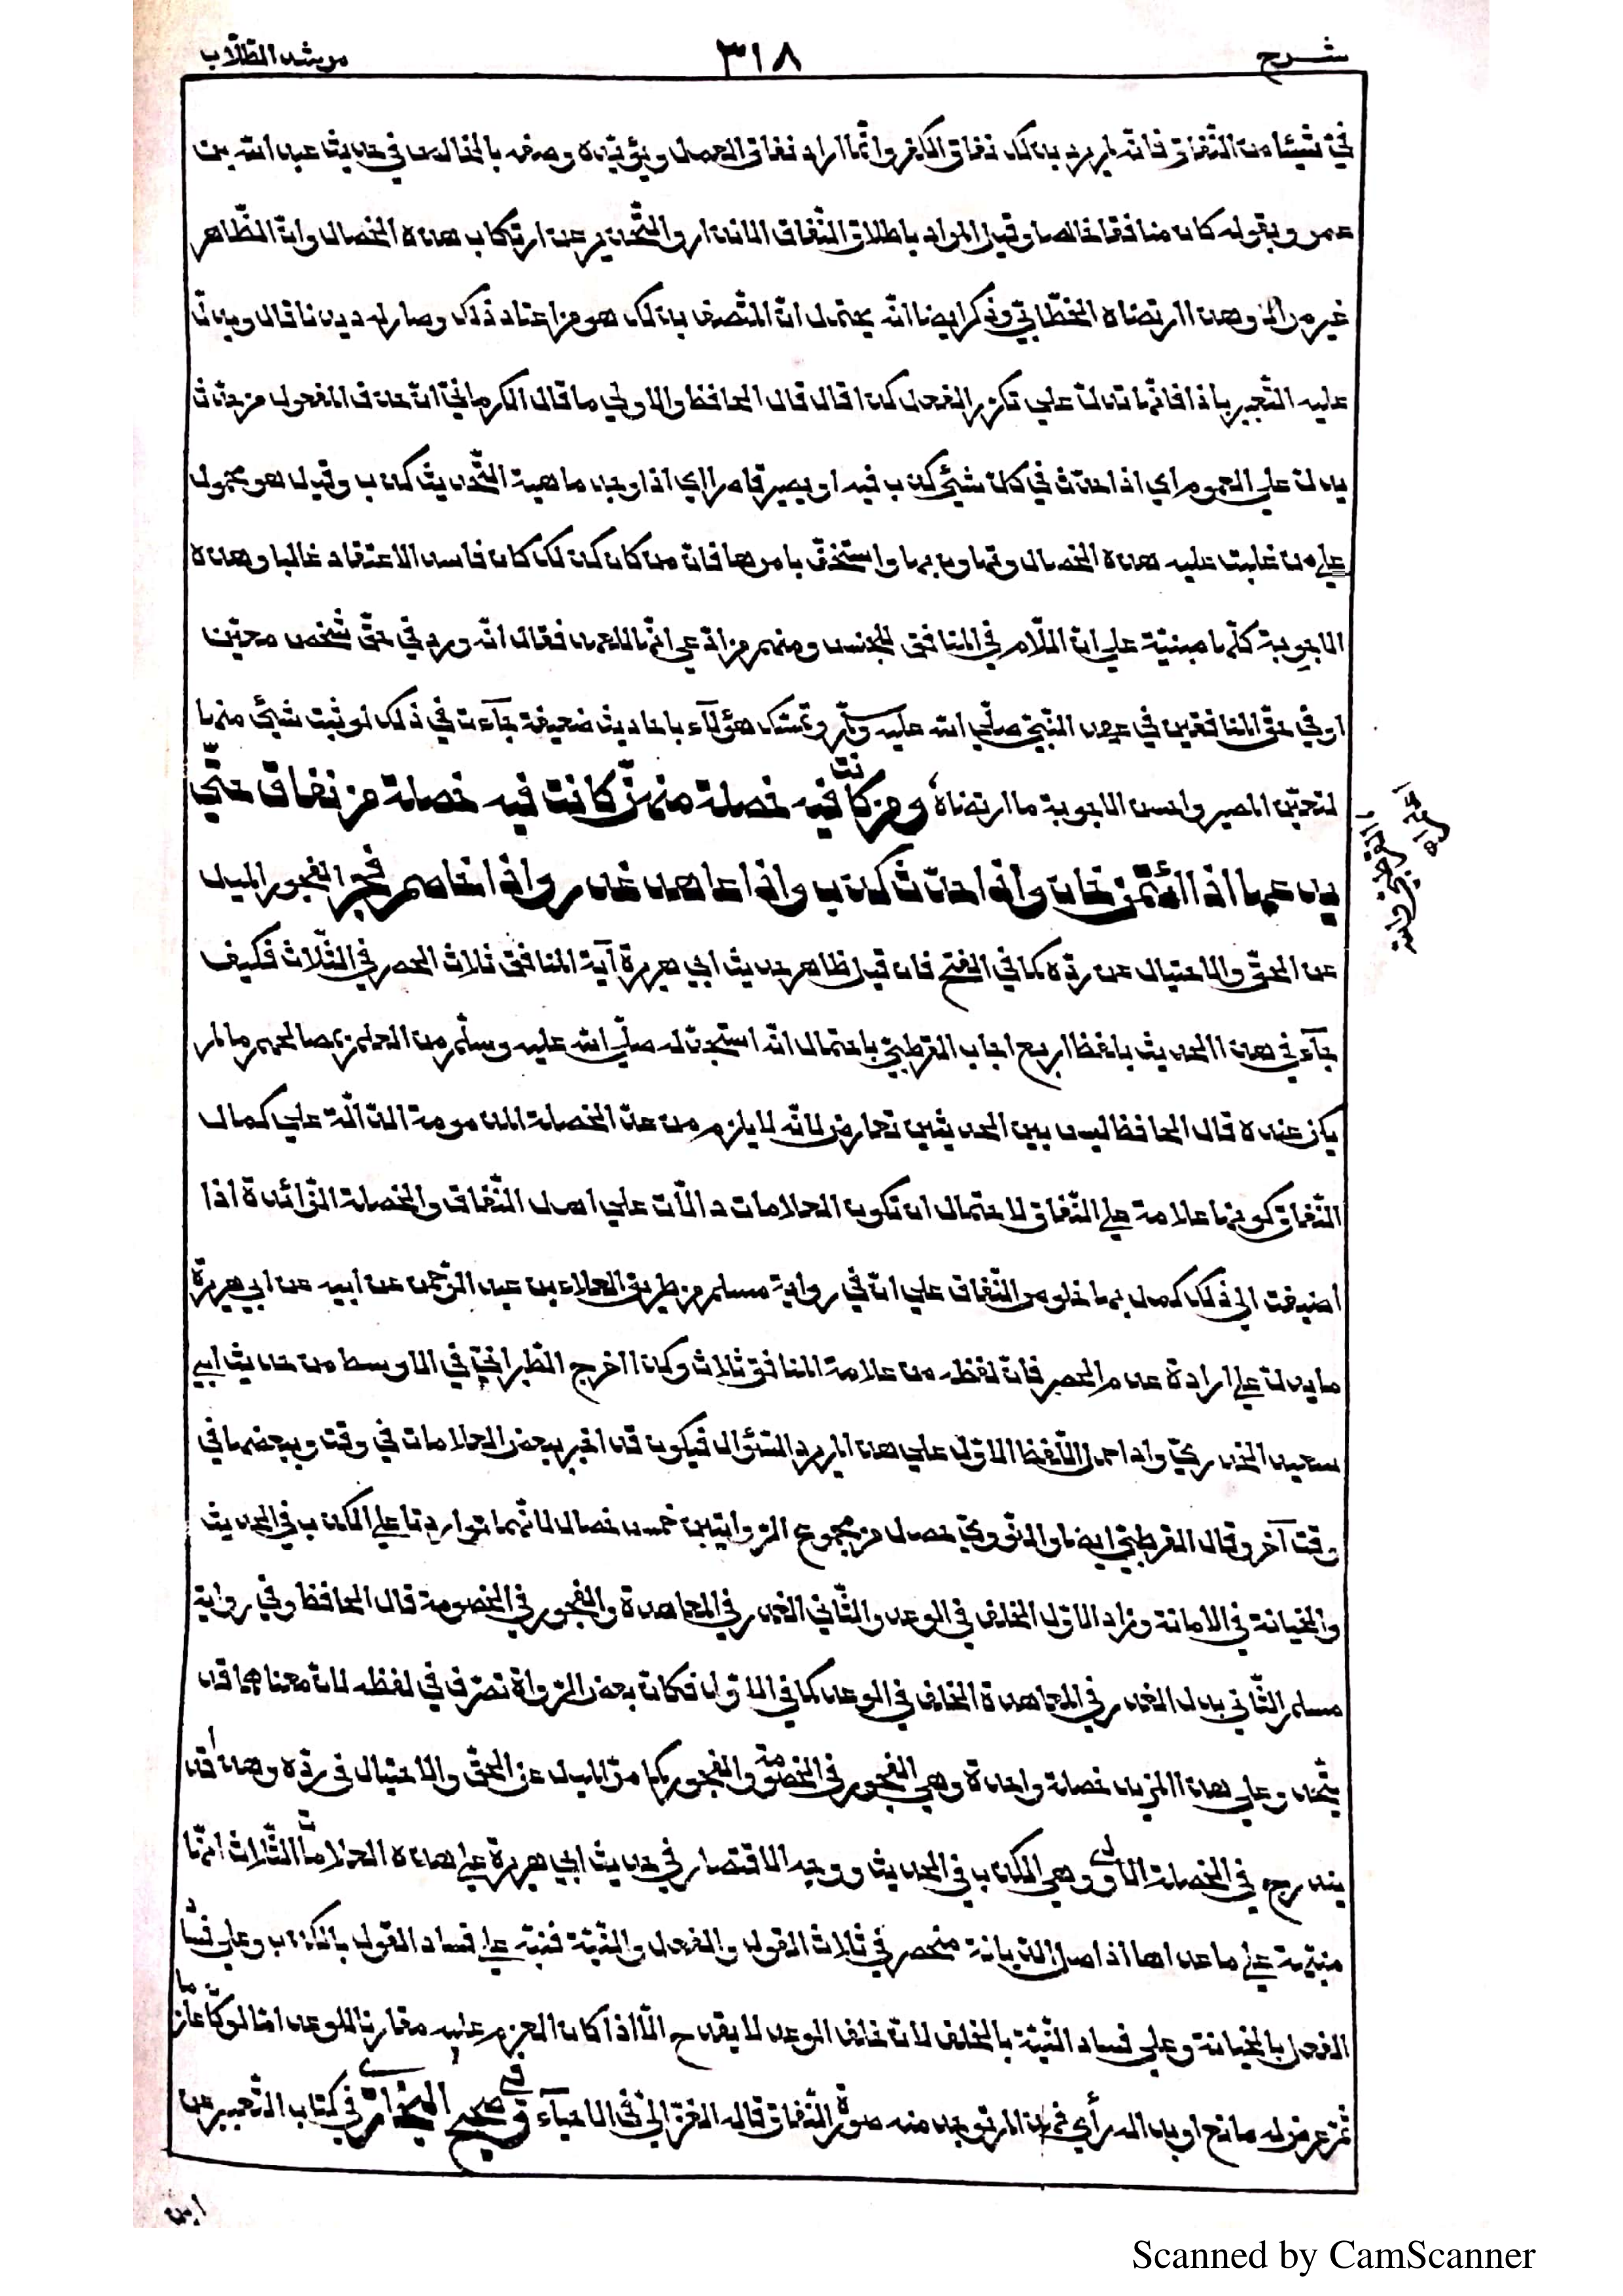 شرح ٣١٨ مرشد الطلّاب
فيّ شيئا من النّفاق فانّه لم يرد بذلك نفاق الكفر وانّما اراد نفاق العمل ويؤيّده وصفه بالخالص في حديث عبد الله بن
عمر وبقوله كان منافقا خالصا وقيل المراد باطلاق النّفاق الانذار والتّحذير عن ارتكاب هذه الخصال وانّ الظّاهر
غير مراد وهذا ارتضاه الخطّابيّ وذكر ايضا انّه يحتمل انّ المتّصف بذلك هو من اعتاد ذلك وصار له ديدنا قال ويدلّ
عليه التّعبير باذا فانّها تدلّ علي تكرّر الفعل كذا قال قال الحافظ والاولي ما قال الكرمانيّ انّ حذف المفعول من حدّث
يدلّ علي العموم اي اذا حدّث في كلّ شيئ كذب فيه او يصير قاصرا اي اذا وجد ماهية التّحديث كذب وقيل هو محمول
علي من غلبت عليه هذه الخصال وتهاون بها واستخفّ بامرها فانّ من كان كذلك كان فاسد الاعتقاد غالبا وهذه
الاجوبة كلّها مبنيّة علي انّ اللّام في المنافق للجنس ومنهم من ادّعي انّها للعهد فقال انّه ورد في حقّ شخص معيّن
او في حقّ المنافقين في عهد النّبيّ صلّي الله عليه وسلّم وتمسّك هؤلآء باحاديث ضعيفة جآءت في ذلك لو ثبت شيئ منها
لتعيّن المصير واحسن الاجوبة ما ارتضاه القرطبيّ والله اعلم اه ومن كانت فيه خصلة منهنّ كانت فيه خصلة من نفاق حتّي
يدعها اذا اؤتمن خان واذا حدّث كذب واذا عاهد غدر واذا خاصم فجر الفجور الميل
عن الحقّ والاحتيال عن ردّه كما في الفتح فان قيل ظاهر حديث ابي هريرة آية المنافق ثلاث الحصر في الثّلاث فكيف
جآء في هذا الحديث بلفظ اربع اجاب القرطبيّ باحتمال انّه استجدّ له صلّي الله عليه وسلّم من العلم بخصالهم ما لم
يكن عنده قال الحافظ ليس بين الحديثين تعارض لانّه لا يلزم من عدّ الخصلة المذمومة الدّالّة علي كمال
النّفاق كونها علامة علي النّفاق لاحتمال ان تكون العلامات دالّات علي اصل النّفاق والخصلة الزّائدة اذا
اضيفت الي ذلك كمل بها خلوص النّفاق علي انّ في رواية مسلم من طريق العلاء بن عبد الرّحمن عن ابيه عن ابي هريرة
ما يدلّ علي ارادة عدم الحصر فانّ لفظه من علامة المنافق ثلاث وكذا اخرج الطّبرانيّ في الاوسط من حديث ابي
سعيد الخدريّ واذا حمل اللّفظ الاوّل علي هذا لم يرد السّؤال فيكون قد اخبر ببعض العلامات في وقت وببعضها في
وقت آخر وقال القرطبيّ ايضا والنّوويّ حصل من مجموع الرّوايتين خمس خصال لانّهما تواردتا علي الكذب في الحديث
والخيانة في الامانة وزاد الاوّل الخلف في الوعد والثّاني الغدر في المعاهدة والفجور في الخصومة قال الحافظ وفي رواية
مسلم الثّاني بدل الغدر في المعاهدة الخلف في الوعد كما في الاوّل فكانّ بعض الرّواة تصرّف في لفظه لانّ معناهما قد
يتّحد وعلي هذا المزيد خصلة واحدة وهي الفجور في الخصومة والفجور كما مرّ الميل عن الحقّ والاحتيال في ردّه وهذا قد
يندرج في الخصلة الاولي وهي الكذب في الحديث ووجه الاقتصار في حديث ابي هريرة علي هذه العلامات الثّلاث انّها
منبّهة علي ما عداها اذ اصل الدّيانة منحصر في ثلاث القول والفعل والنّيّة فنبّه علي فساد القول بالكذب وعلي فساد
الفعل بالخيانة وعلي فساد النّيّة بالخلف لانّ خلف الوعد لا يقدح الّا اذا كان العزم عليه مقارنا للوعد امّا لو كان عازما
ثمّ عرض له مانع او بدا له رأي فهذا لم توجد منه صورة النّفاق قاله الغزاليّ في الاحياء وفي صحيح البخاريّ في كتاب التّعبير عن
ابن